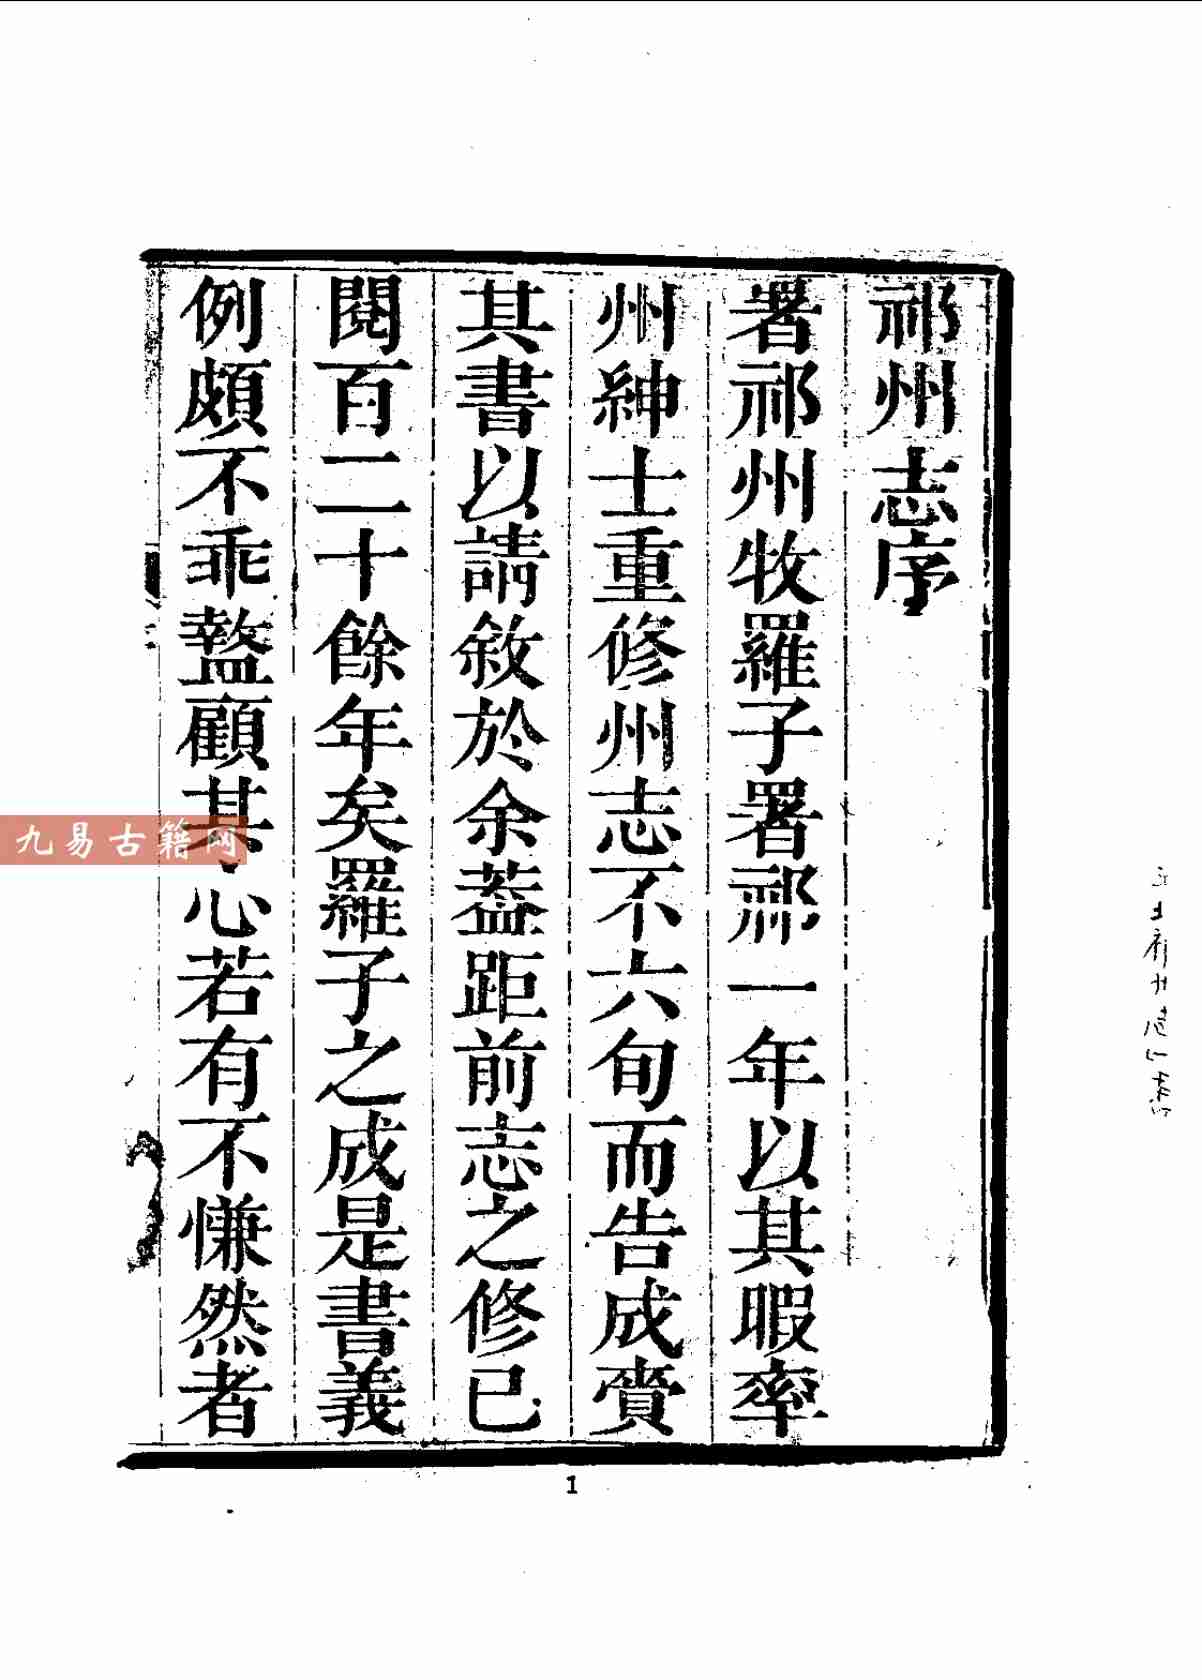 祁州志序
署祁州牧羅子署祁一年以其暇率
州紳士重修州志不六旬而告成賫
其書以請敘於余葢距前志之修已
閱百二十餘年矣羅子之成是書義
例頗不乖盭顧其心若有不慊然者
九易古籍网
1